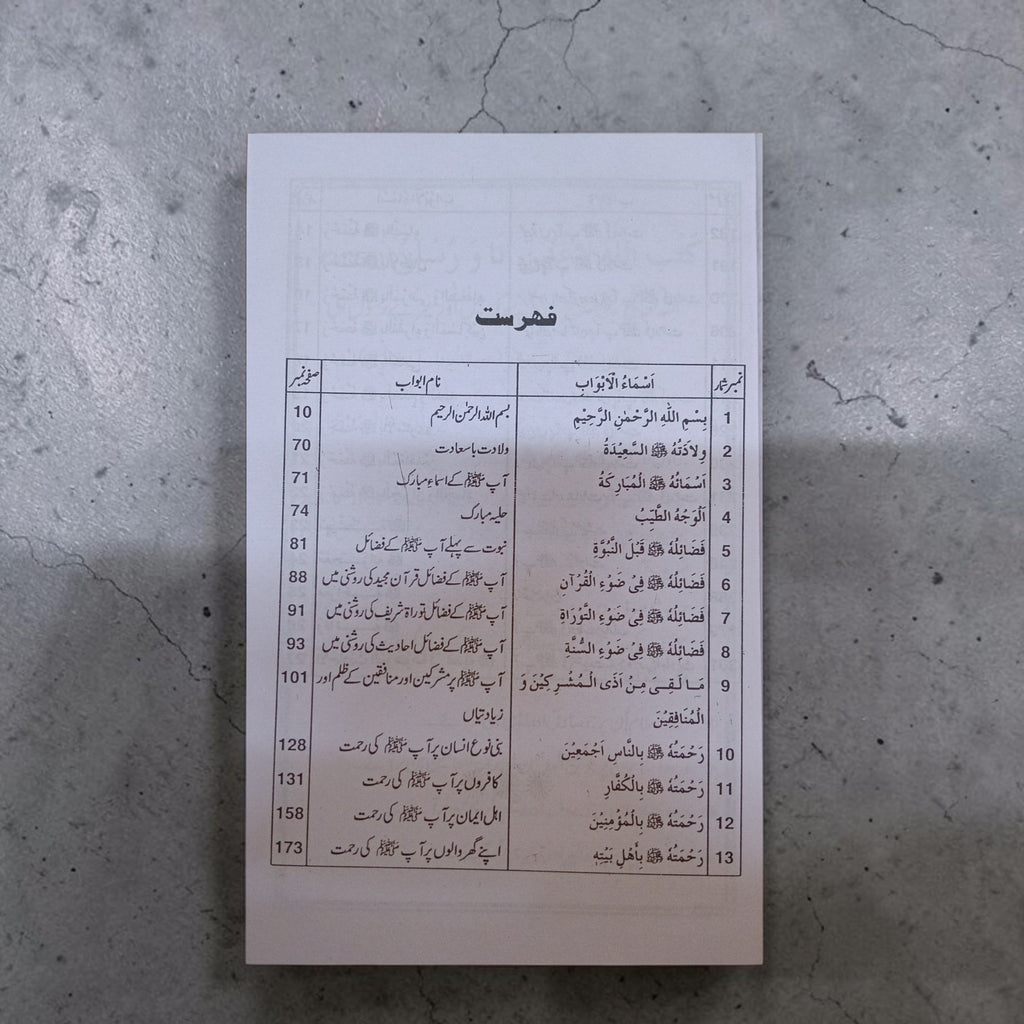 فہرست
نمبر شمار اَسْمَاءُ الْاَبْوَابِ نام ابواب صفحہ نمبر
1 بِسْمِ اللهِ الرَّحْمٰنِ الرَّحِيْمِ بسم اللہ الرحمٰن الرحیم 10
2 وِلَادَتُهُ ﷺ السَّعِيْدَةُ ولادت باسعادت 70
3 اَسْمَائُهُ ﷺ الْمُبَارِكَةُ آپ ﷺ کے اسماءِ مبارک 71
4 اَلْوَجْهُ الطَّيِّبُ حلیہ مبارک 74
5 فَضَائِلُهُ ﷺ قَبْلَ النُّبُوَّةِ نبوت سے پہلے آپ ﷺ کے فضائل 81
6 فَضَائِلُهُ ﷺ فِيْ ضَوْءِ الْقُرْآنِ آپ ﷺ کے فضائل قرآن مجید کی روشنی میں 88
7 فَضَائِلُهُ ﷺ فِيْ ضَوْءِ التَّوْرَاةِ آپ ﷺ کے فضائل توراۃ شریف کی روشنی میں 91
8 فَضَائِلُهُ ﷺ فِيْ ضَوْءِ السُّنَّةِ آپ ﷺ کے فضائل احادیث کی روشنی میں 93
9 مَا لَقِىَ مِنْ اَذَى الْمُشْرِكِيْنَ وَ آپ ﷺ پر مشرکین اور منافقین کے ظلم اور 101
الْمُنَافِقِيْنَ زیادتیاں
10 رَحْمَتُهُ ﷺ بِالنَّاسِ اَجْمَعِيْنَ بنی نوع انسان پر آپ ﷺ کی رحمت 128
11 رَحْمَتُهُ ﷺ بِالْكُفَّارِ کافروں پر آپ ﷺ کی رحمت 131
12 رَحْمَتُهُ ﷺ بِالْمُؤْمِنِيْنَ اہل ایمان پر آپ ﷺ کی رحمت 158
13 رَحْمَتُهُ ﷺ بِأَهْلِ بَيْتِهٖ اپنے گھر والوں پر آپ ﷺ کی رحمت 173